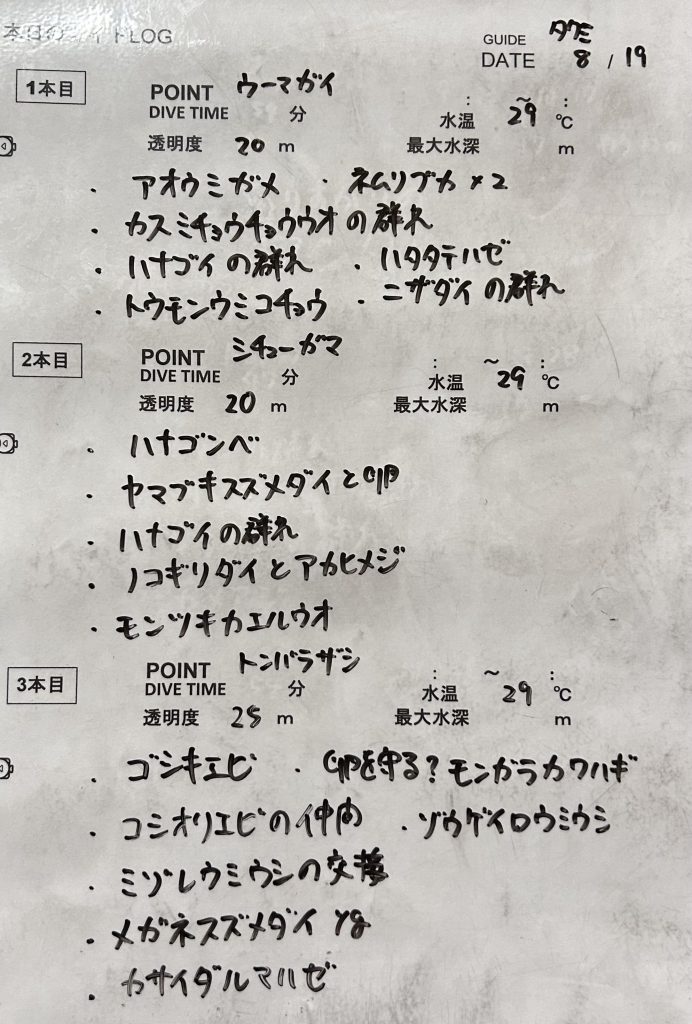 本日の LOG
GUIDE タクミ
DATE 8 / 19
1本目 POINT ウーマガイ
DIVE TIME 分 : ~ :
水温 29 ℃
透明度 20 m 最大水深 m
・アオウミガメ ・ネムリブカ×2
・カスミチョウチョウウオの群れ
・ハナゴイの群れ ・ハタタテハゼ
・トウモンウミコチョウ ・ニザダイの群れ
2本目 POINT シチューガマ
DIVE TIME 分 : ~ :
水温 29 ℃
透明度 20 m 最大水深 m
・ハナゴンベ
・ヤマブキスズメダイと卵
・ハナゴイの群れ
・ノコギリダイとアカヒメジ
・モンツキカエルウオ
3本目 POINT トンバラザシ
DIVE TIME 分 : ~ :
水温 29 ℃
透明度 25 m 最大水深 m
・ゴシキエビ ・卵を守る?モンガラカワハギ
・コシオリエビの仲間 ・ゾウゲイロウミウシ
・ミゾレウミウシの交接
・メガネスズメダイ yg
・カサイダルマハゼ